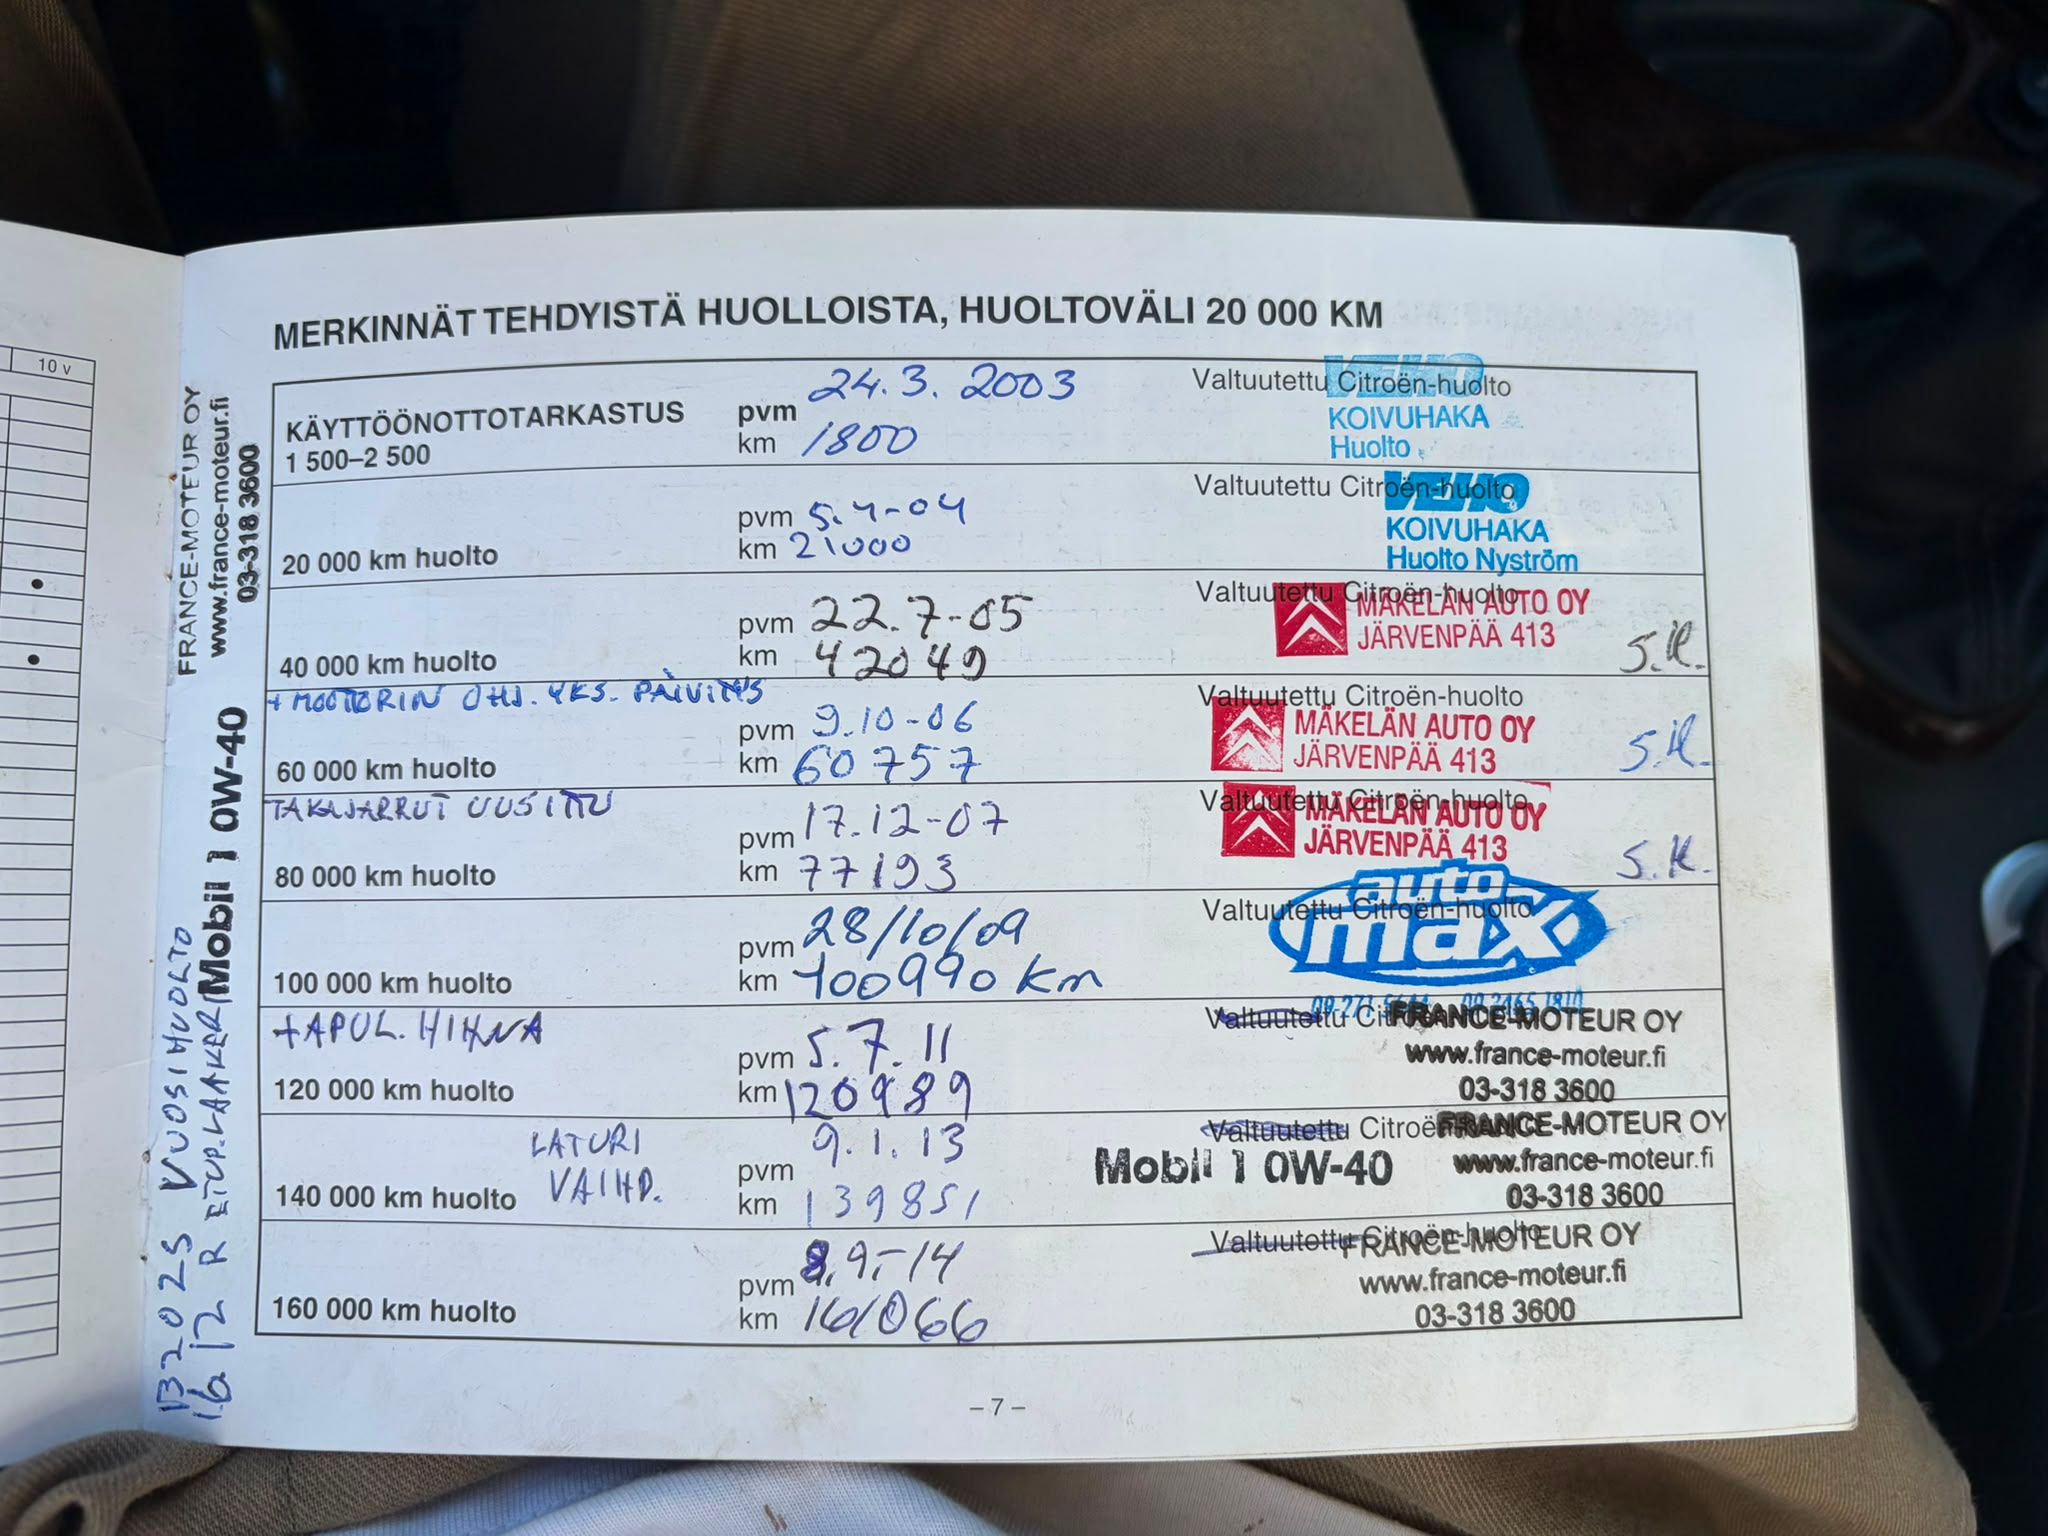 10 v
MERKINNÄT TEHDYISTÄ HUOLLOISTA, HUOLTOVÄLI 20 000 KM
KÄYTTÖÖNOTTOTARKASTUS
1 500–2 500
pvm 24.3. 2003
km 1800
Valtuutettu Citroën-huolto
VEHO
KOIVUHAKA
Huolto
20 000 km huolto
pvm 5.4-04
km 21000
Valtuutettu Citroën-huolto
VEHO
KOIVUHAKA
Huolto Nyström
40 000 km huolto
pvm 22.7-05
km 42049
Valtuutettu Citroën-huolto
MÄKELÄN AUTO OY
JÄRVENPÄÄ 413
S.K.
+ MOOTTORIN OHJ. YKS. PÄIVITYS
60 000 km huolto
pvm 9.10-06
km 60757
Valtuutettu Citroën-huolto
MÄKELÄN AUTO OY
JÄRVENPÄÄ 413
S.K.
TAKAJARRUT UUSITTU
80 000 km huolto
pvm 17.12-07
km 77193
Valtuutettu Citroën-huolto
MÄKELÄN AUTO OY
JÄRVENPÄÄ 413
S.K.
100 000 km huolto
pvm 28/10/09
km 100990 km
Valtuutettu Citroën-huolto
auto
max
+ APUL. HIHNA
120 000 km huolto
pvm 5.7.11
km 120989
Valtuutettu
FRANCE-MOTEUR OY
www.france-moteur.fi
03-318 3600
LATURI
VAIHD.
140 000 km huolto
pvm 9.1.13
km 139851
Valtuutettu
Mobil 1 0W-40
FRANCE-MOTEUR OY
www.france-moteur.fi
03-318 3600
160 000 km huolto
pvm 8.9.-14
km 161066
Valtuutettu Citroën-huolto
FRANCE-MOTEUR OY
www.france-moteur.fi
03-318 3600
– 7 –
FRANCE-MOTEUR OY
www.france-moteur.fi
03-318 3600
Mobil 1 0W-40
VUOSIHUOLTO